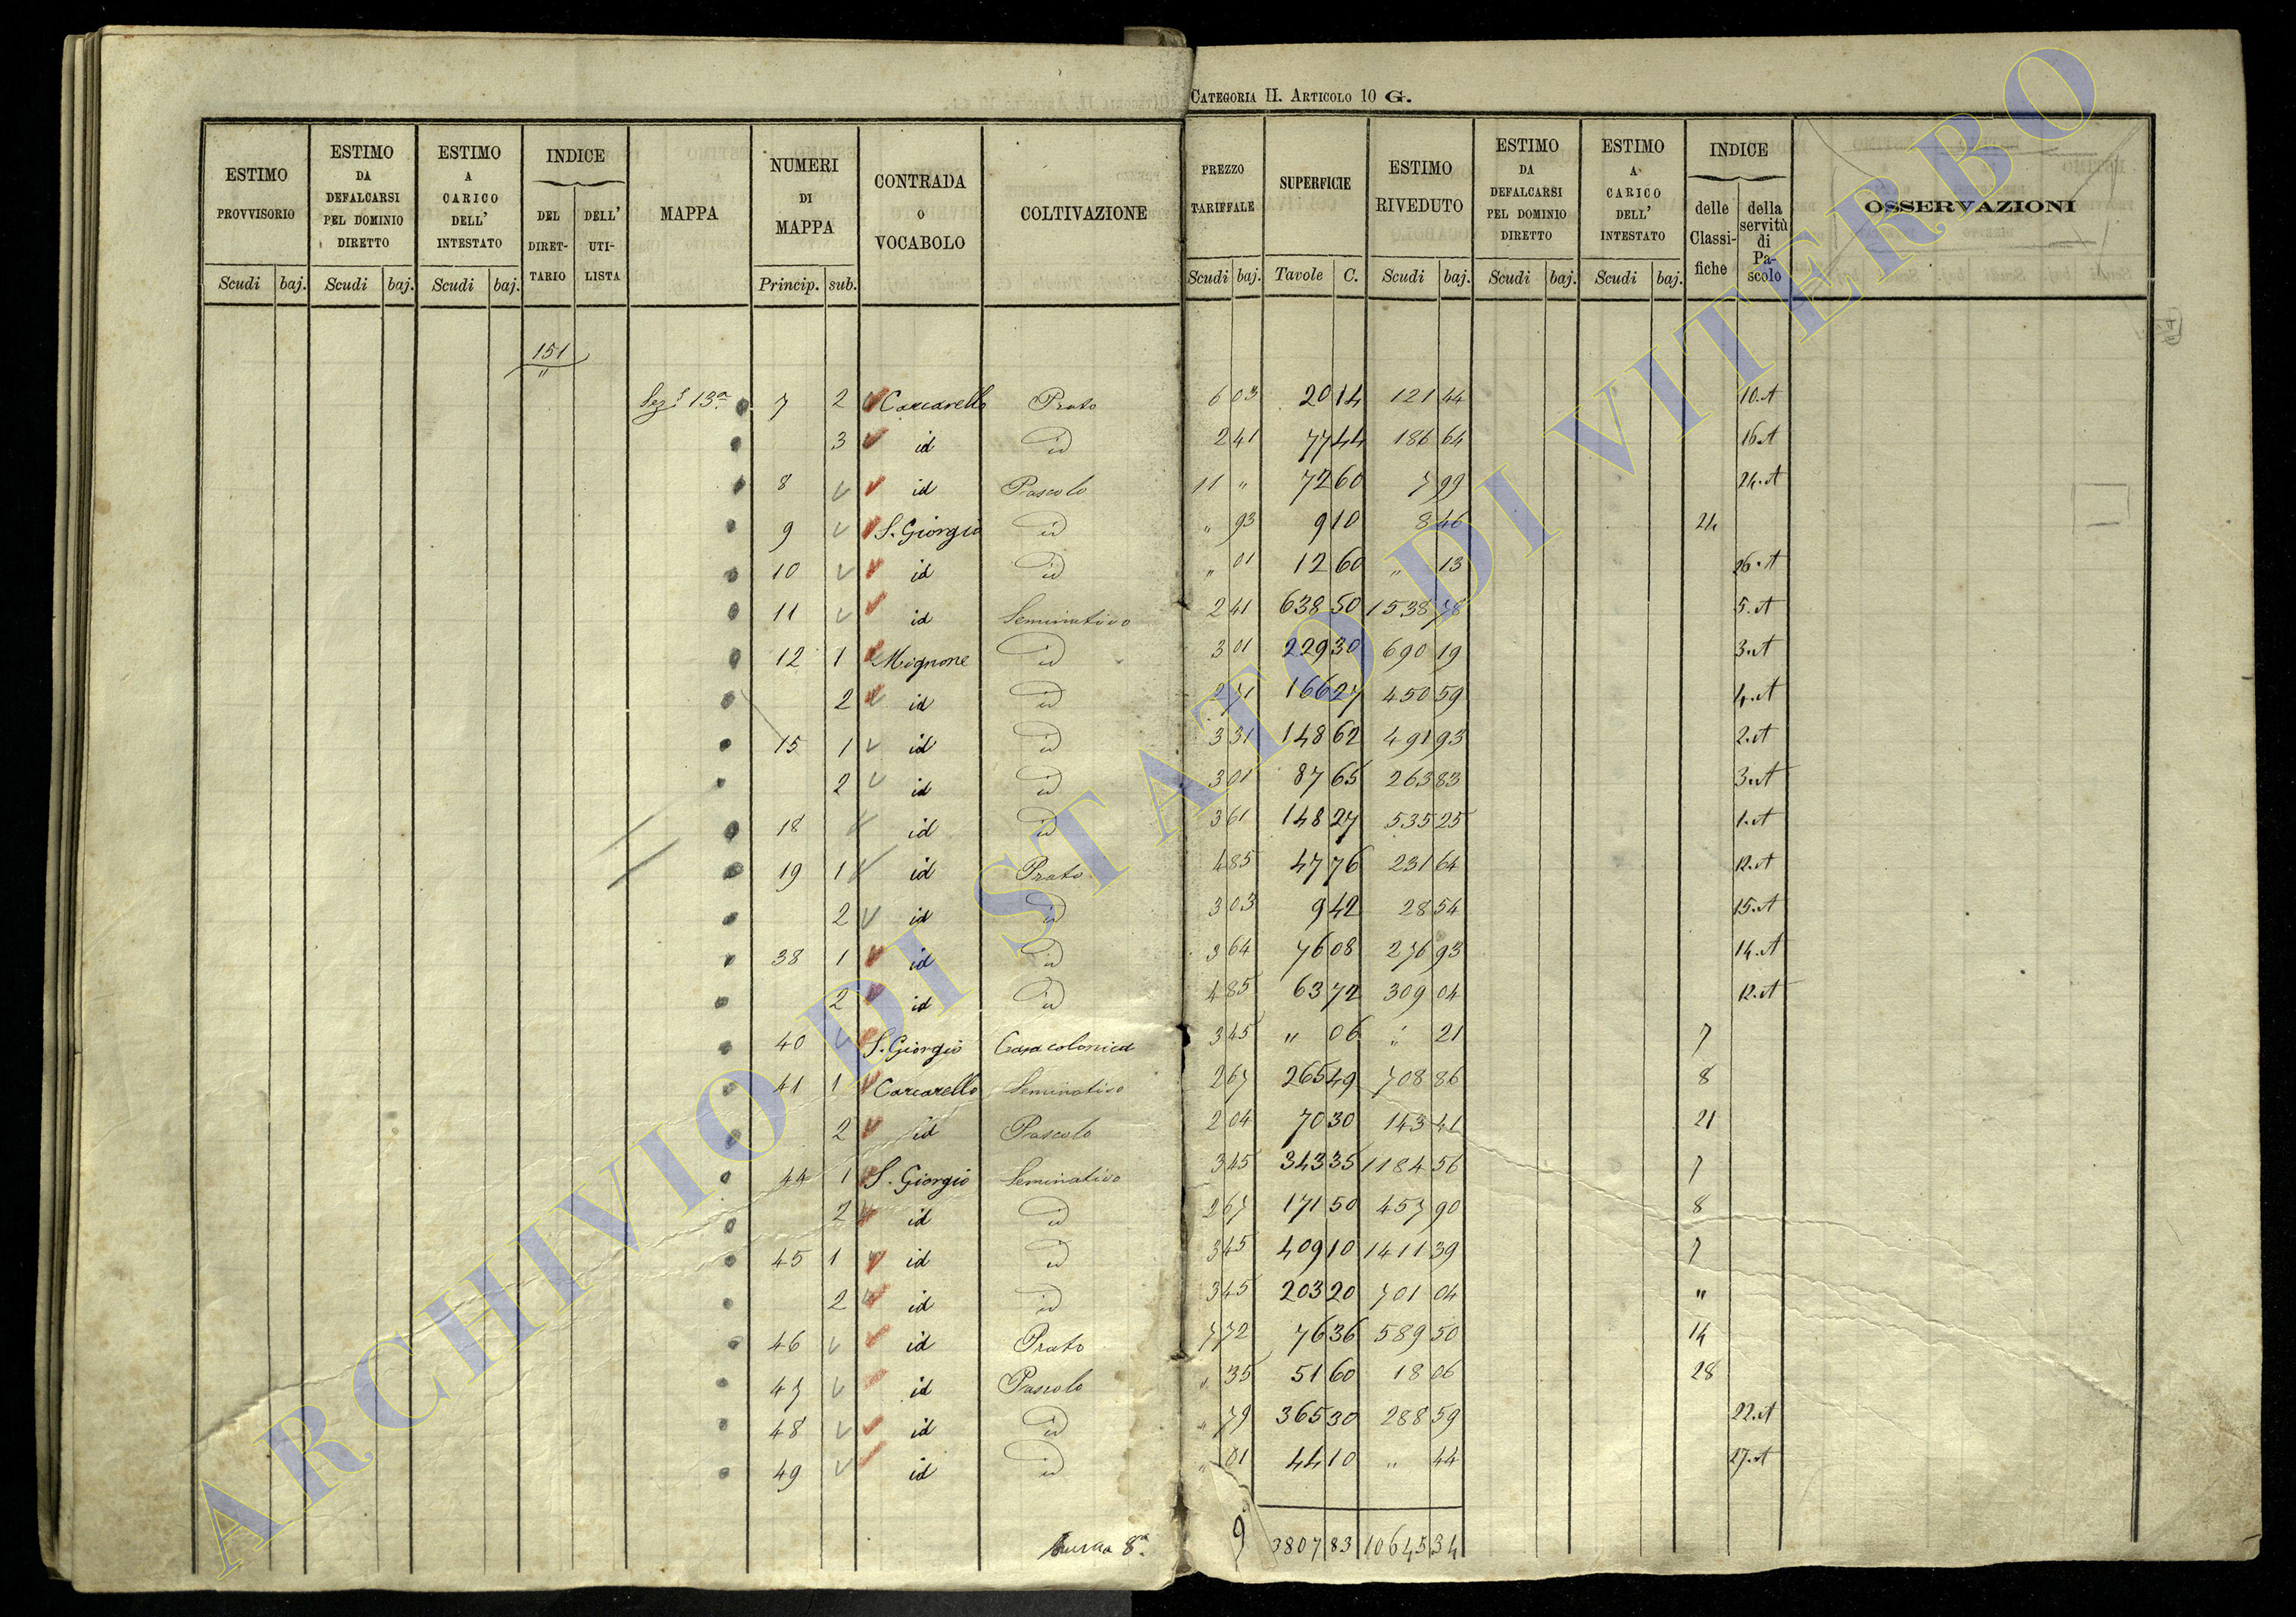 CATEGORIA II. ARTICOLO 10 G.
ESTIMO PROVVISORIO Scudi baj. ESTIMO DA DEFALCARSI PEL DOMINIO DIRETTO Scudi baj. ESTIMO A CARICO DELL' INTESTATO Scudi baj. INDICE DEL DIRET-TARIO DELL' UTI-LISTA MAPPA NUMERI DI MAPPA Princip. sub. CONTRADA O VOCABOLO COLTIVAZIONE PREZZO TARIFFALE Scudi baj. SUPERFICIE Tavole C. ESTIMO RIVEDUTO Scudi baj. ESTIMO DA DEFALCARSI PEL DOMINIO DIRETTO Scudi baj. ESTIMO A CARICO DELL' INTESTATO Scudi baj. INDICE delle Classi-fiche della servitù di Pa-scolo OSSERVAZIONI
151
"
Sez.e 13a 7 2 Carcarello Prato 6 03 20 14 121 44 10.A
3 id id 2 41 77 44 186 64 16.A
8 id Pascolo 11 " 72 60 7 99 24.A
9 S. Giorgio id " 93 9 10 8 46 24
10 id id " 01 12 60 " 13 26.A
11 id Seminativo 2 41 638 50 1538 78 5.A
12 1 Mignone id 3 01 229 30 690 19 3.A
2 id id 2 71 166 27 450 59 4.A
15 1 id id 3 31 148 62 491 93 2.A
2 id id 3 01 87 65 263 83 3.A
18 id id 3 61 148 27 535 25 1.A
19 1 id Prato 4 85 47 76 231 64 12.A
2 id id 3 03 9 42 28 54 15.A
38 1 id id 3 64 76 08 276 93 14.A
2 id id 4 85 63 72 309 04 12.A
40 S. Giorgio Casa colonica 3 45 " 06 " 21 7
41 1 Carcarello Seminativo 2 67 265 49 708 86 8
2 id Pascolo 2 04 70 30 143 41 21
44 1 S. Giorgio Seminativo 3 45 343 35 1184 56 7
2 id id 2 67 171 50 457 90 8
45 1 id id 3 45 409 10 1411 39 7
2 id id 3 45 203 20 701 04 "
46 id Prato 7 72 76 36 589 50 14
47 id Pascolo " 35 51 60 18 06 28
48 id id " 79 365 30 288 59 22.A
49 id id " 01 44 10 " 44 27.A
8a 9 3807 83 10645 34
ARCHIVIO DI STATO DI VITERBO